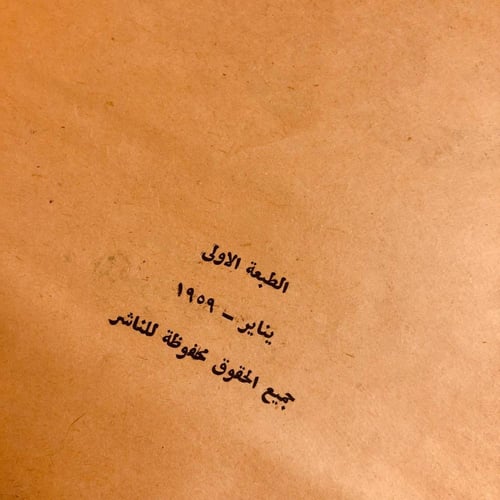 الطبعة الاولى
يناير – ١٩٥٩
جميع الحقوق محفوظة للناشر